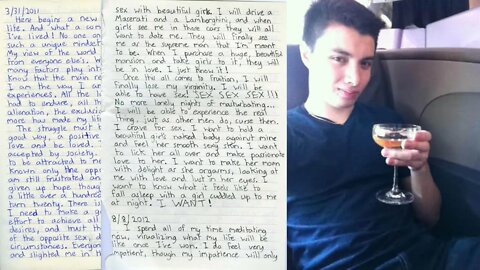 3/31/2011
Here begins a new
life. And what a som
I've lived! No one an
such a unique mindset
My view of the world
from everyone else's. W
many factors play into
know that the main re
I am the way I ar
experiences. All the l
had to endure, all th
alienation, the exclusio
more has made my life
The struggle must t
good way. or positive
love and be loved.
accepted by society.
to be attracted to me
known only the oppos
am still frustrated an
given up hope thoug
a little over a hundred
turn twenty. There is
I need to make a gr
effort to achieve all
desires, and trust th
of the opposite sex, d
circumstances. Everyon
and slighted me in th
sex with beautiful girls. I will drive a
Maserati and a Lamborghini, and when
girls see me in those cars they will all
want to date me. They will finally see
me as the supreme man that I'm meant
to be. When I purchase a huge, beautiful
mansion and take girls to it, they will
be in love. I just know it!
Once its all came to fruition, I will
finally lose my virginity. I will be
able to have sex! SEX SEX SEX!!!
No more lonely nights of masturbating...
I will be able to experience the real
thing, just as other men do.
I crave for sex. I want to hold a
beautiful girls naked body against mine
and feel her smooth sexy skin. I want
to lick her all over and make passionate
love to her. I want to make her moan
with delight as she orgasms, looking at
me with love and lust in her eyes. I
want to know what it feels like to
fall asleep with a girl cuddled up to me
at night. I WANT!
8/8/2012
I spend all of my time meditating
now, visualizing what my life will be
like once I've won. I do feel very
impatient, though my impatience will only